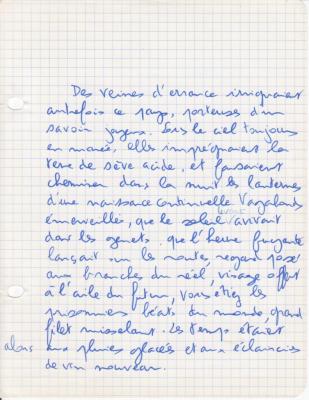 Des veines d'errance irriguaient
autrefois ce pays, porteuses d'un
savoir joyeux. Sous le ciel toujours
en marche, elles imprégnaient la
terre de sève acide, et faisaient
cheminer dans la nuit les lanternes
d'une naissance continuelle. Vagabonds
émerveillés, que le soleil levant avivait
dans les genêts, que l'heure fuyante
lançait sur les routes, regard posé
aux branches du réel, visage offert
à l'aile du futur, vous étiez les
prisonniers béats du monde, grand
filet ruisselant. Les temps étaient
alors aux pluies glacées et aux éclaircies
de vin nouveau.